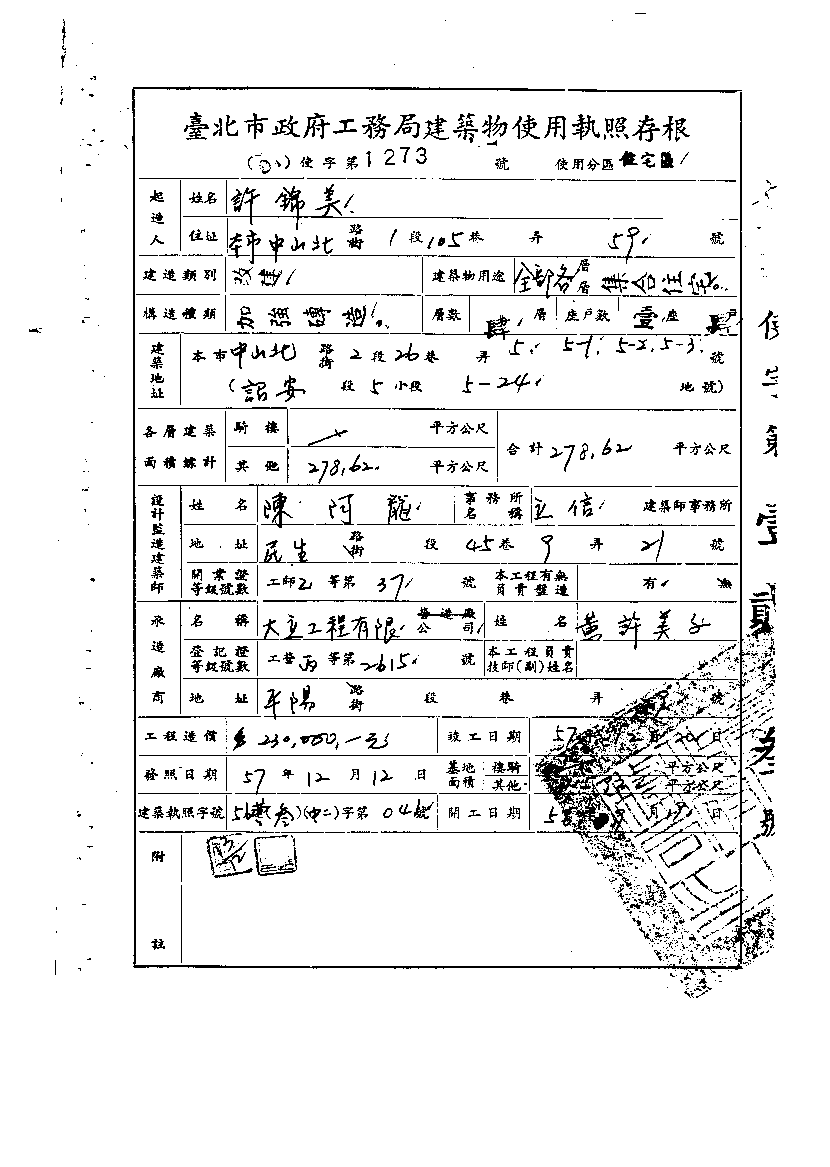 臺北市政府工務局建築物使用執照存根
使字第1273號 使用分區住宅區
起造人 姓名 許錦美
住址 本市中山北路街1段105巷弄59號
建造類別 改建 建築物用途 全部各層層集合住宅
構造種類 加強磚造 層數 肆層 座戶數 壹座 戶
建築地址 本市中山北路街2段26巷弄5、5-1、5-2、5-3號
(詔安段5小段5-24地號)
各層建築面積總計 騎樓 平方公尺 合計278.62平方公尺
其他 278.62 平方公尺
設計監造建築師 姓名 陳阿龍 事務所名稱 立信 建築師事務所
地址 民生路街段45巷9弄21號
開業證等級號數 工師乙等第37號 本工程有無負責監造 有 無
承造廠商 名稱 大立工程有限營造廠公司 姓名 黃許美子
登記證等級號數 工營丙等第2615號 本工程負責技師(副)姓名
地址 平陽路街段巷弄號
工程造價 230,000,-元 竣工日期 57年12月20日
發照日期 57年12月12日 基地面積 樓騎 平方公尺
其他 平方公尺
建築執照字號 56 (中二)字第04號 開工日期 月 日
附註
使字第壹貳 叁號